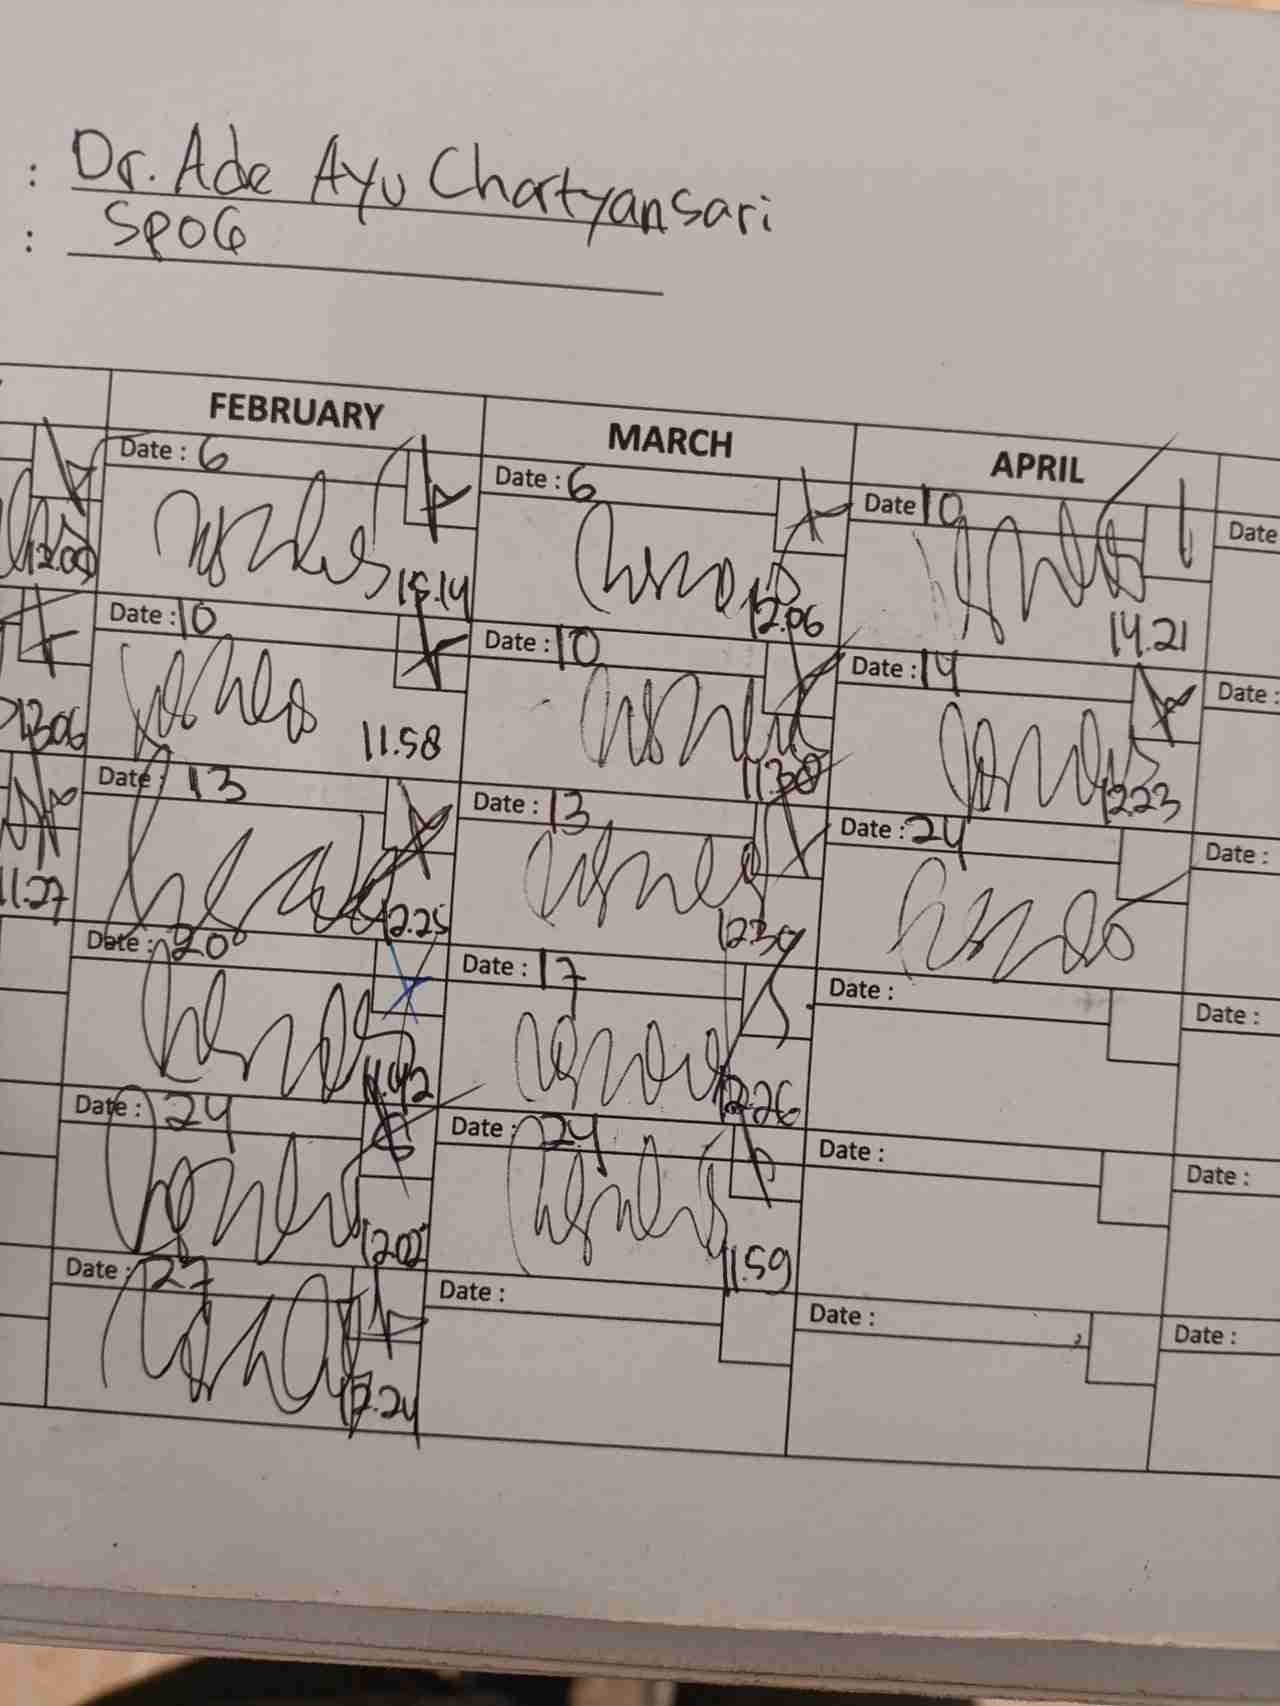 : Dr. Ade Ayu Chartyansari
: SPOG
FEBRUARY MARCH APRIL
Date : 6 Date : 6 Date 10 Date
12.00 15.14 12.06 14.21
Date : 10 Date : 10 Date : 14 Date :
1306 11.58 11.38 1223
Date : 13 Date : 13 Date : 24 Date :
11.27 12.25
Date : 20 Date : 17 Date : Date :
11.42 12.26
Date : 24 Date : 24 Date : Date :
1202 11.59
Date : 27 Date : Date : Date :
12.24